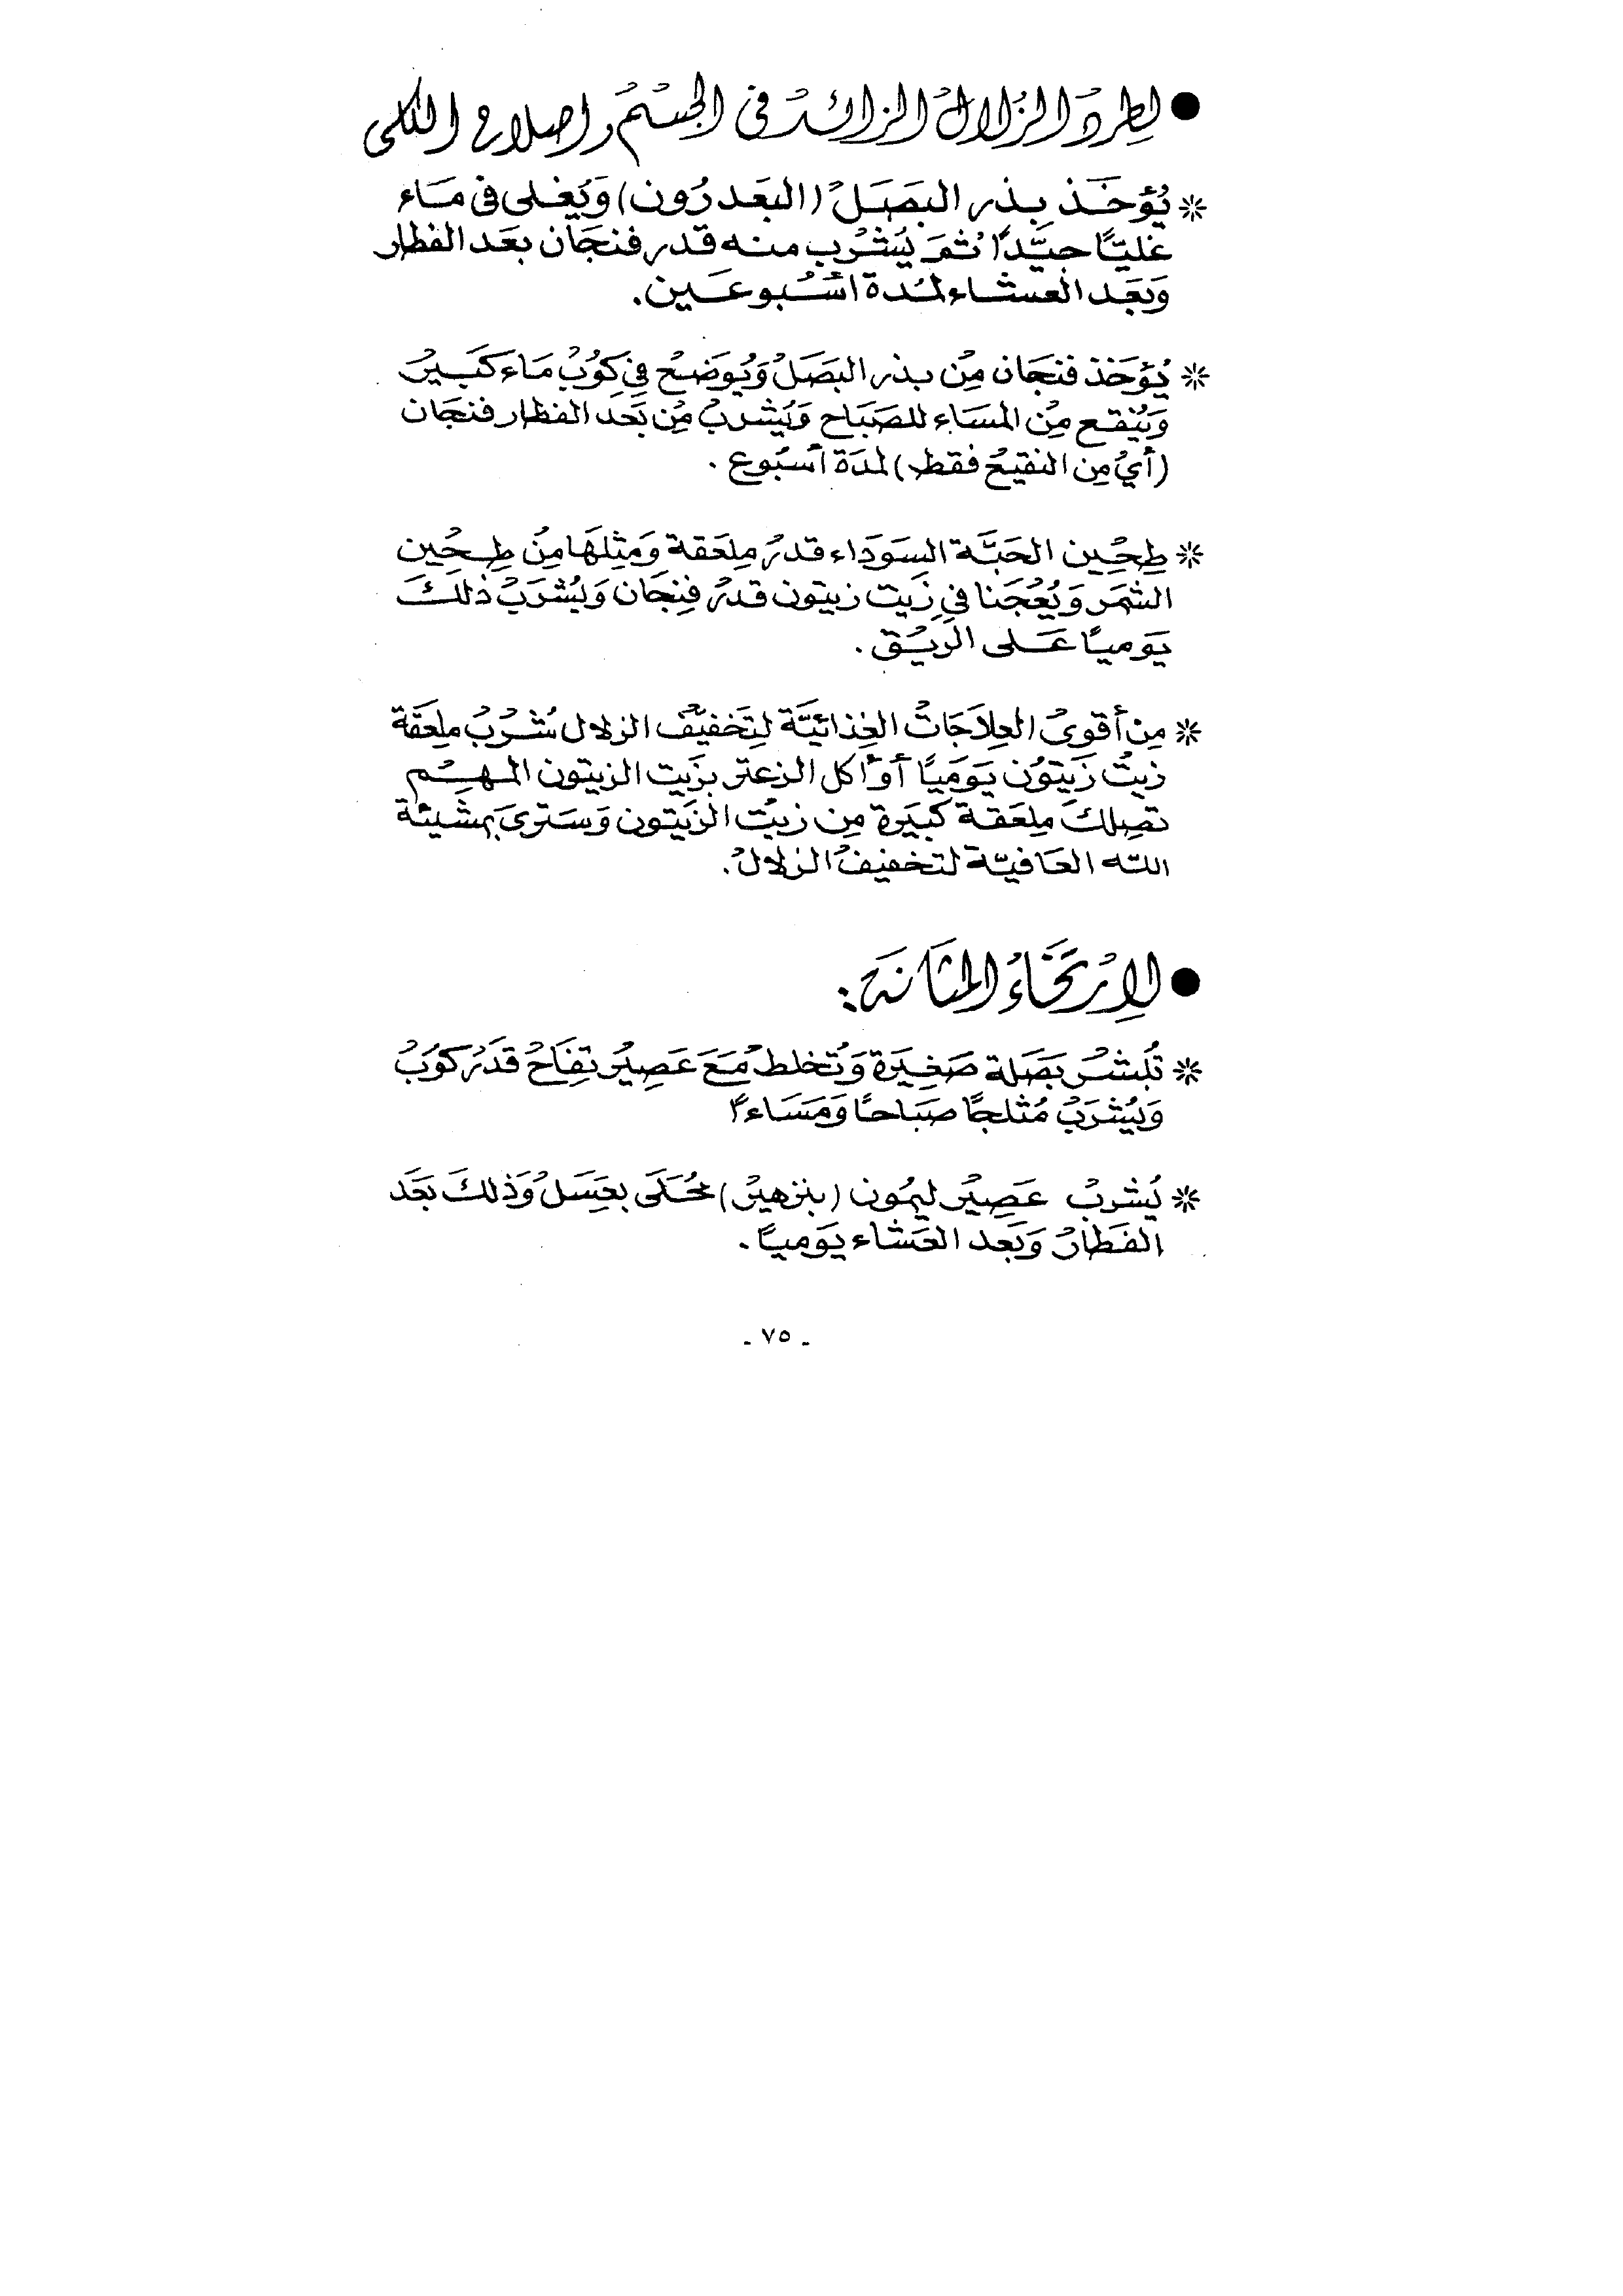 ● لِطرد الزُلال الزائد فى الجسْم وإصلاح الكلى
* يُؤخَذ بِذر البَصَلْ (البَعَدرُون) وَيُغلى فى مَاء
غليًا جيِّدًا ثمَ يُشرُب منه قدر فنجَان بعَد الفطار
وَبعَد العشاء لمُدة اسُبوعَين.
* يُؤخَذ فنجَان مِنْ بذر البَصَلْ وَيُوضَعْ فِي كوُبْ مَاء كَبَيرْ
وَيُنقع مِنْ المسَاء للصَبَاح وَيُشربْ مِنْ بَعَد الفطار فنجَان
(أيْ مِن النقيعْ فقط) لمدَة أسبُوع.
* طِحِين الحَبَّة السَودَاء قدرْ مِلعَقة وَمِثِلهَا مِنْ طِحِين
الشمَر وَيُعُجَنا فِي زَيت زيتون قدرْ فِنجَان وَيُشرَبْ ذلكَ
يَوميًا عَلى الرَيقْ.
* مِن أقوىْ العِلاَجَاتْ الغِذائيَّة لتِخَفيفْ الزلال شُربْ ملِعَقة
زيتْ زَيتوُن يَوَميًا أو أكل الزعتر بزَيت الزيتون المهِمْ
تصِلكَ مِلعَقة كبيَرة مِن زيتْ الزَيتون وَسَترىَ بمشيئة
الله العَافيّة لتخفيفْ الزلالْ.
● لإِرتخَاءْ المثَانَة:
* تُبشرْ بَصَلة صَغِيَرة وَتُخلط مَعَ عَصِيرْ تفِاَحْ قدَرْ كوَبْ
وَيُشرَبْ مُثلجًا صبَاحًا وَمَسَاءً
* يُشربْ عَصِيرْ ليمُون (بنزهيرْ) مُحَلَى بعِسَلْ وَذلكَ بعَد
الفَطَارْ وَبَعَد العَشاء يَوَميًا.
- ٧٥ -